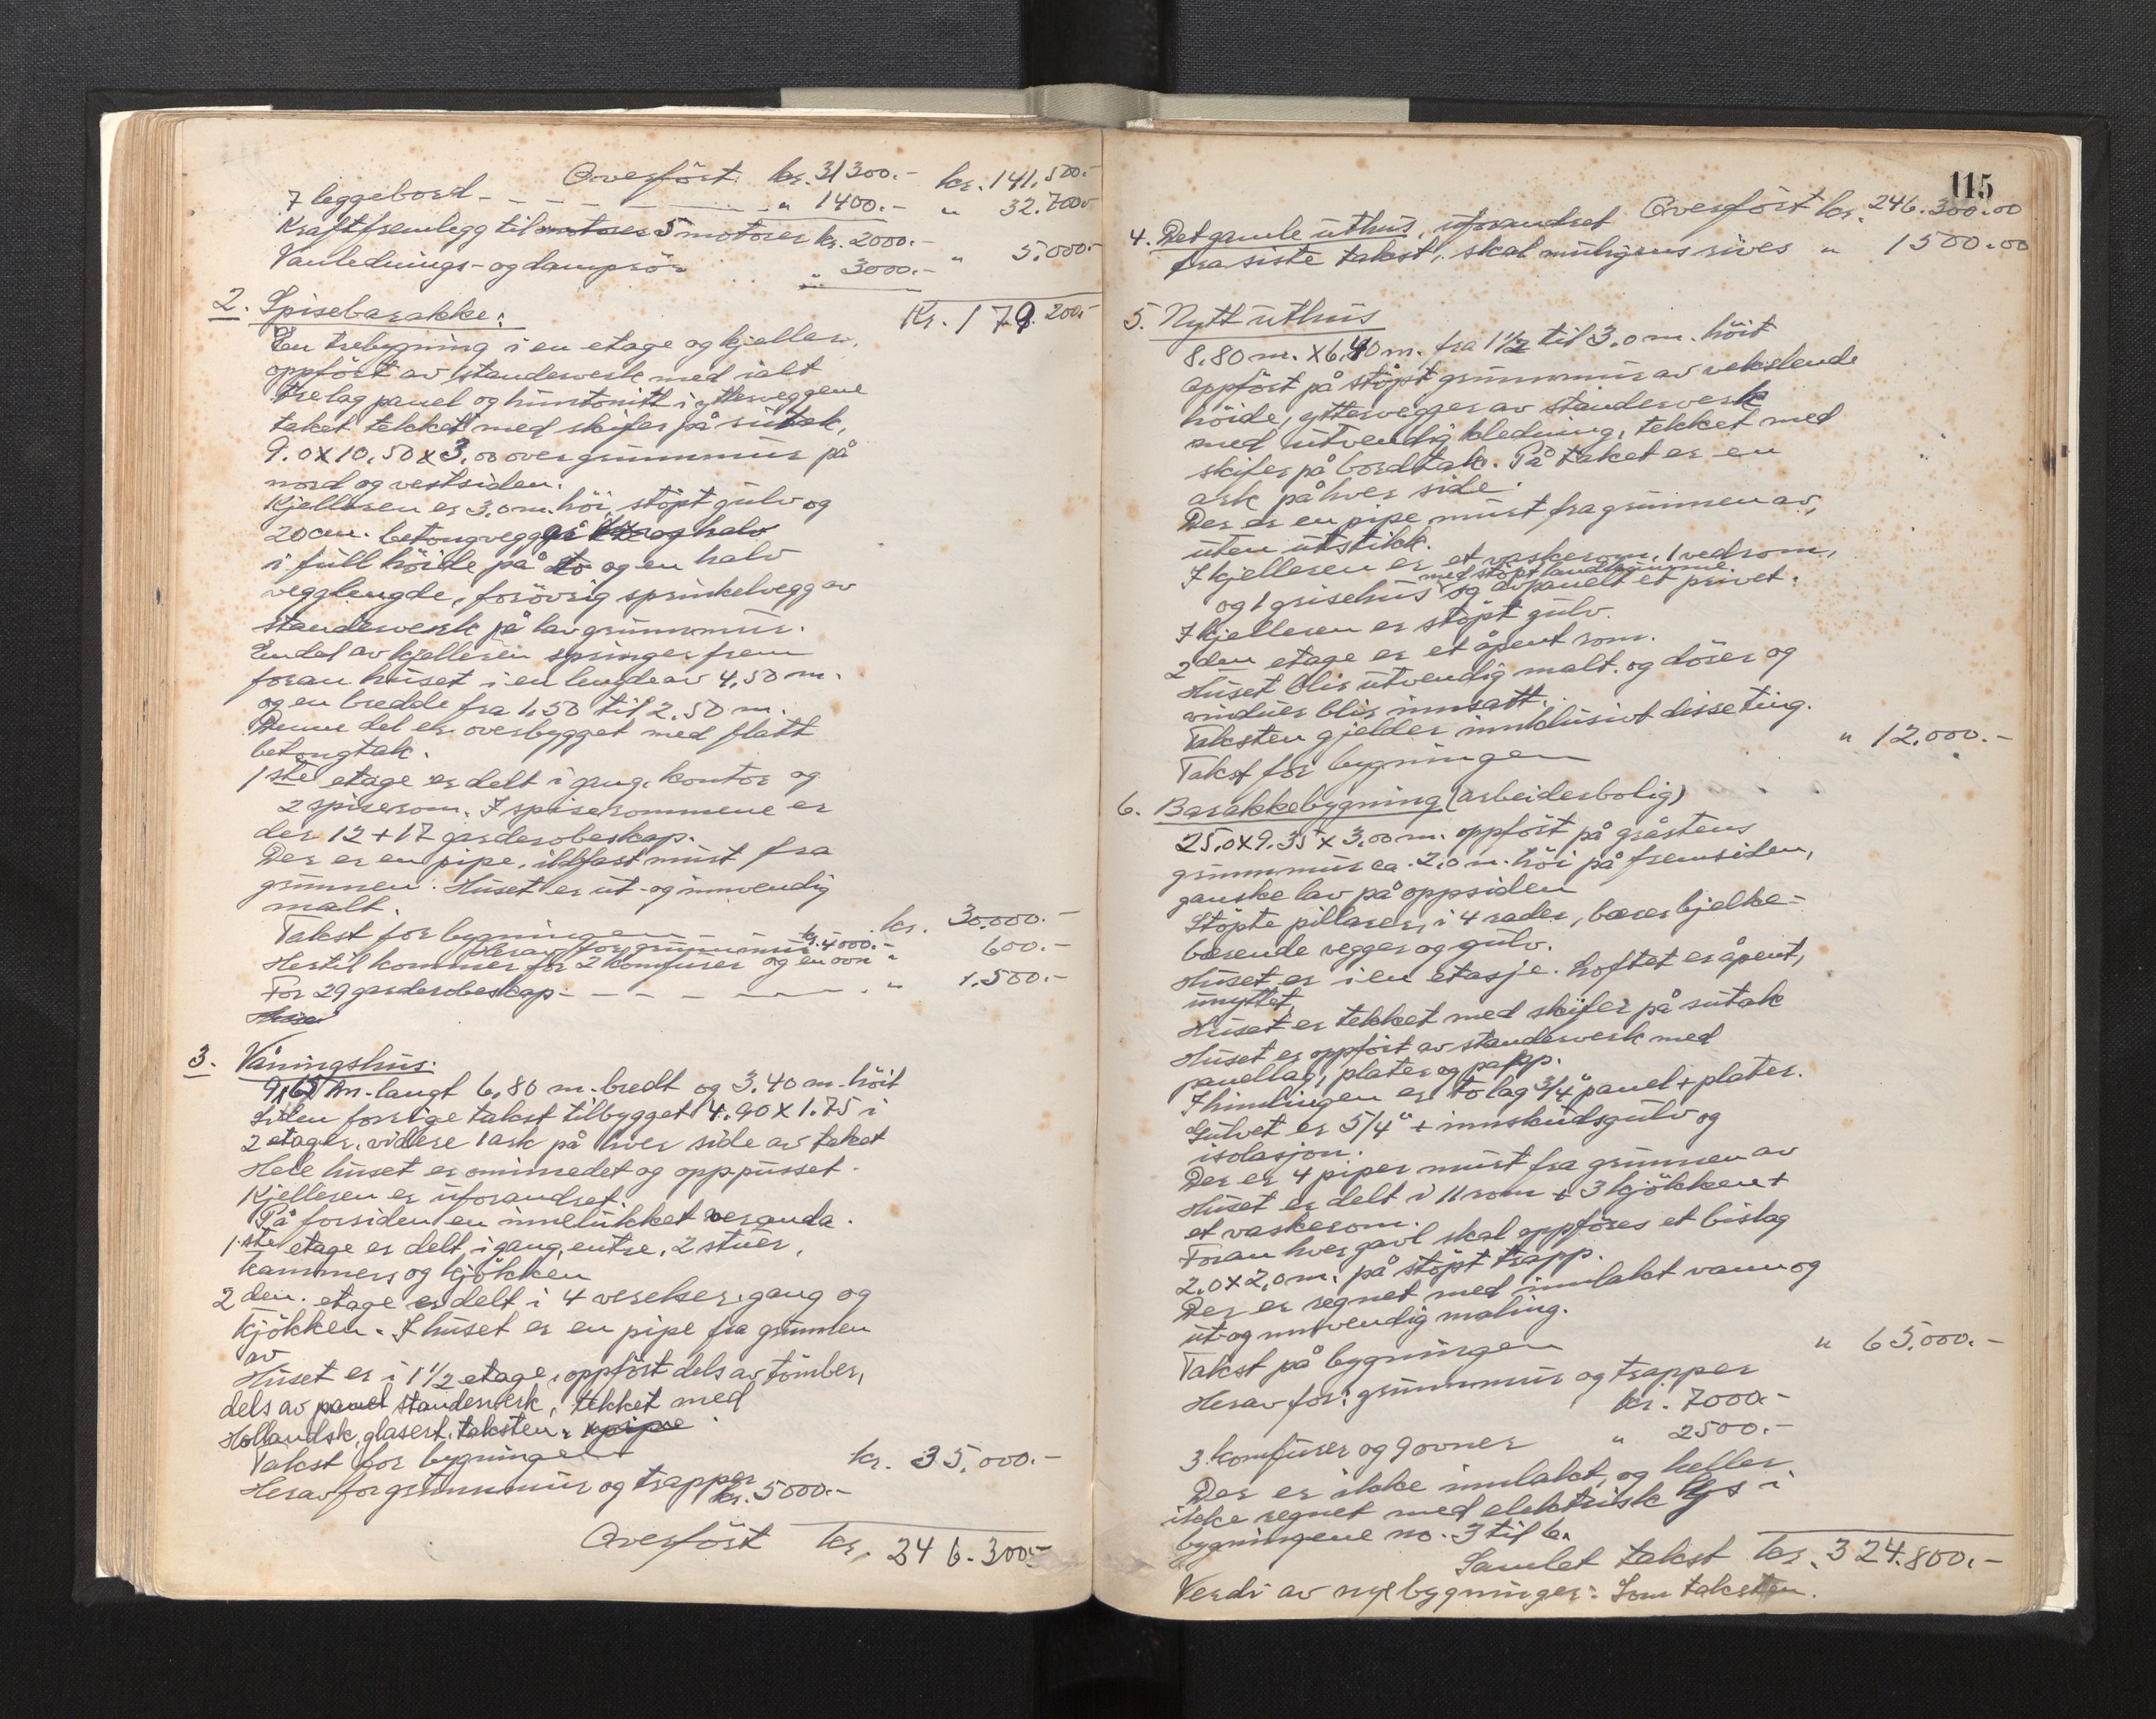 Overført kr. 31300.- kr. 141,500.-
7 leggebord - - - - - - " 1400.- " 32.700.-
Kraftfremlegg til motorer 5 motorer kr. 2000.-
Vanlednings- og damprör " 3000.- " 5.000.-
Kr. 179.200.-
2. Spisebarakke:
En trebygning i en etage og kjeller,
oppfört av standerverk med ialt
tre lag panel og huntonitt i ytterveggene
taket tekket med skifer på sutak,
9.0 x 10,50 x 3,00 over grunnmur på
nord og vestsiden.
Kjelleren er 3,0 m. höi, stöpt gulv og
20 cm. betongvegger og halv
i full höide på to og en halv
vegglengde, forövrig sprinkelvegg av
standerverk på lav grunnmur.
En del av kjelleren springer frem
foran huset i en lengde av 4,50 m.
og en bredde fra 1,50 til 2.50 m.
Denne del er overbygget med flatt
betongtak.
1ste etage er delt i gang, kontor og
2 spiserom. I spiserommene er
der 12 + 17 garderobeskap.
Der er en pipe, ildfast murt fra
grunnen. Huset er ut- og innvendig
malt.
Takst for bygningen kr. 30.000.-
Herav for grunnmur kr. 4000.-
Hertil kommer for 2 komfurer og en ovn " 600.-
For 29 garderobeskap - - - - - " 1.500.-
Huset
3. Våningshus:
9,65 m. langt 6,80 m. bredt og 3.40 m. höit
Siden forrige takst tilbygget 4.90 x 1.75 i
2 etager, videre 1 ark på hver side av taket
Hele huset er ominredet og opppusset.
Kjelleren er uforandret.
På forsiden en innelukket veranda.
1.ste etage er delt i gang, entre, 2 stuer,
kammers og kjökken
2 den. etage er delt i 4 verelser, gang og
kjökken. I huset er en pipe fra grunnen
av
Huset er i 1 1/2 etage, oppfört dels av tömber,
dels av panel standerverk, tekket med
Hollandsk, glasert, taksten.
Takst for bygningen kr. 35.000.-
Herav for grunnmur og trapper
kr. 5000.-
Overfört kr. 246.300.-
115
Overfört kr. 246.300.00
4. Det gamle uthus, uforandret
fra siste takst, skal muligens rives " 1500.00
5. Nytt uthus
8.80 m. x 6,40 m. fra 1 1/2 til 3.0 m. höit
oppfört på stöpt grunnmur av vekslende
höide, yttervegger av standerverk
med utvendig kledning, tekket med
skifer på bordtak. På taket er en
ark på hver side.
Der er en pipe murt fra grunnen av,
uten utstikk.
I kjelleren er et vaskerom, 1 vedrom,
med støpt landkumme
og 1 grisehus og avpanelt et privet.
I kjelleren er stöpt gulv.
2den etage er et åpent rom.
Huset blir utvendig malt. og dörer og
vinduer blir innsatt.
Taksten gjelder innklusivt disse ting.
Takst for bygningen " 12.000.-
6. Barakkebygning (arbeiderbolig)
25,0 x 9.35 x 3,00 m. oppfört på gråstens
grunnmur ca. 2,0 m. höi på fremsiden,
ganske lav på oppsiden
Stöpte pillarer, i 4 rader, bærer bjelke-
bærende vegger og gulv.
Huset er i en etasje. Loftet er åpent,
unyttet,
Huset er tekket med skifer på sutak
Huset er oppfört av standerverk med
panellag, plater og papp.
I himlingen er to lag 3/4" panel + plater.
Gulvet er 5/4" + innskudsgulv og
isolasjon.
Der er 4 piper murt fra grunnen av
Huset er delt i 11 rom + 3 kjökken +
et vaskerom.
Foran hver gavl skal oppföres et bislag
2,0 x 2,0 m. på stöpt trapp.
Der er regnet med innlakt vann og
ut og innvendig maling.
Takst på bygningen " 65.000.-
Herav for: grunnmur og trapper
kr. 7000.-
3 komfurer og 9 ovner " 2500.-
Der er ikke innlakt, og heller
ikke regnet med elektrisk lys i
bygningene no. 3 til 6.
Samlet takst kr. 324.800.-
Verdi av nye bygninger: Som taksten.